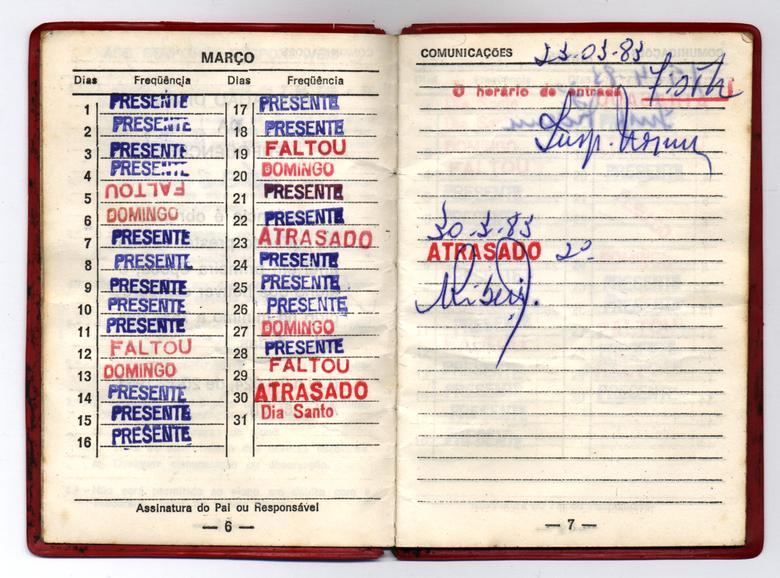 MARÇO
Dias Freqüência Dias Freqüência
1 PRESENTE 17 PRESENTE
2 PRESENTE 18 PRESENTE
3 PRESENTE 19 FALTOU
4 PRESENTE 20 DOMINGO
5 FALTOU 21 PRESENTE
6 DOMINGO 22 PRESENTE
7 PRESENTE 23 ATRASADO
8 PRESENTE 24 PRESENTE
9 PRESENTE 25 PRESENTE
10 PRESENTE 26 PRESENTE
11 PRESENTE 27 DOMINGO
12 FALTOU 28 PRESENTE
13 DOMINGO 29 FALTOU
14 PRESENTE 30 ATRASADO
15 PRESENTE 31 Dia Santo
16 PRESENTE
Assinatura do Pai ou Responsável
— 6 —
COMUNICAÇÕES 23.03.83
O horário de entrada
30.3.83
ATRASADO 2º
— 7 —